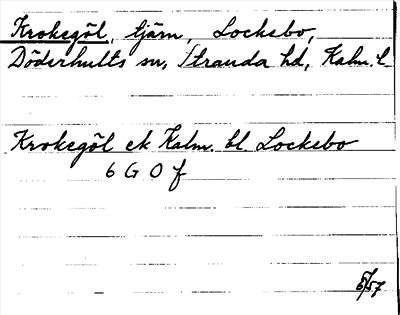 Krokegöl, tjärn, Lockebo,
Döderhults sn, Stranda hd, Kalm. l.
Krokegöl ek Kalm. bl. Lockebo
6 G 0 f
5/57